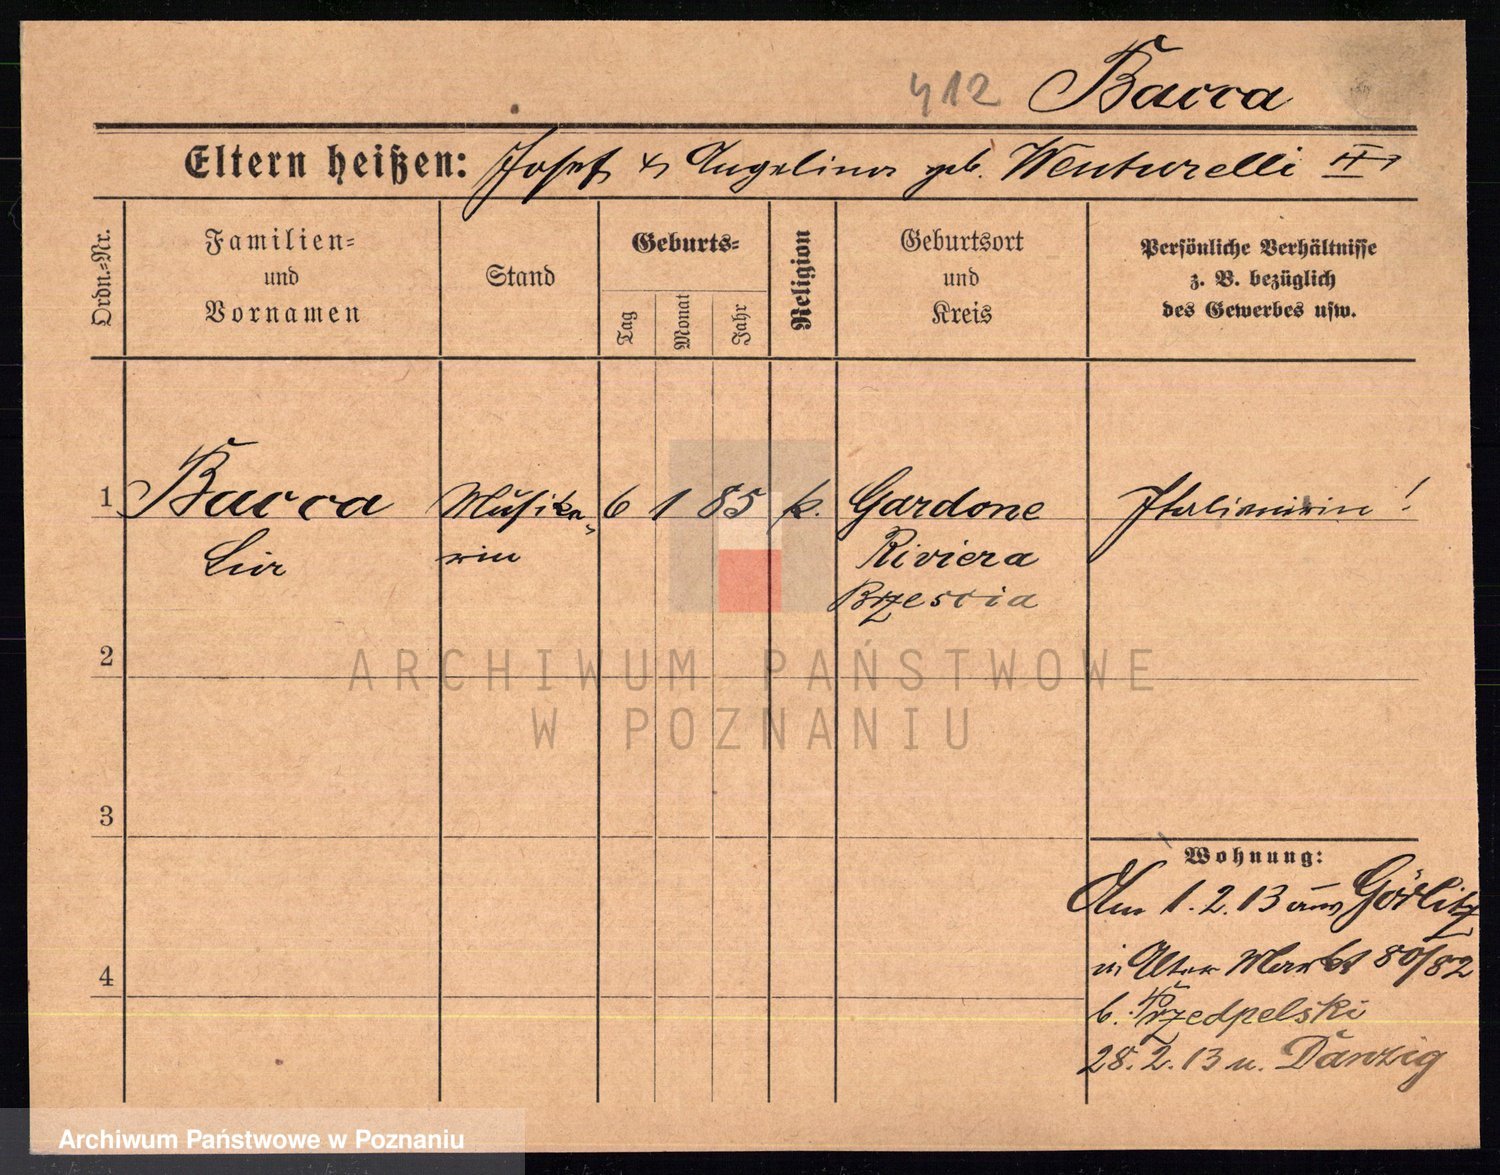 412 Bacca
Eltern heißen: Josef & Angelina geb. Wenturelli
Ordn.=Nr.
Familien=
und
Vornamen
Stand
Geburts=
Tag
Monat
Jahr
Religion
Geburtsort
und
Kreis
Persönliche Verhältnisse
z. B. bezüglich
des Gewerbes usw.
1 Bacca Musike= 6 1 85 k. Gardone Italienierin!
Lia rin Riviera
Brzescia
2
3
4
ARCHIWUM PAŃSTWOWE
W POZNANIU
Wohnung:
Am 1.2.13 aus Görlitz
in Alter Markt 80/82
b. Przedpelski
28.2.13 n. Danzig
Archiwum Państwowe w Poznaniu